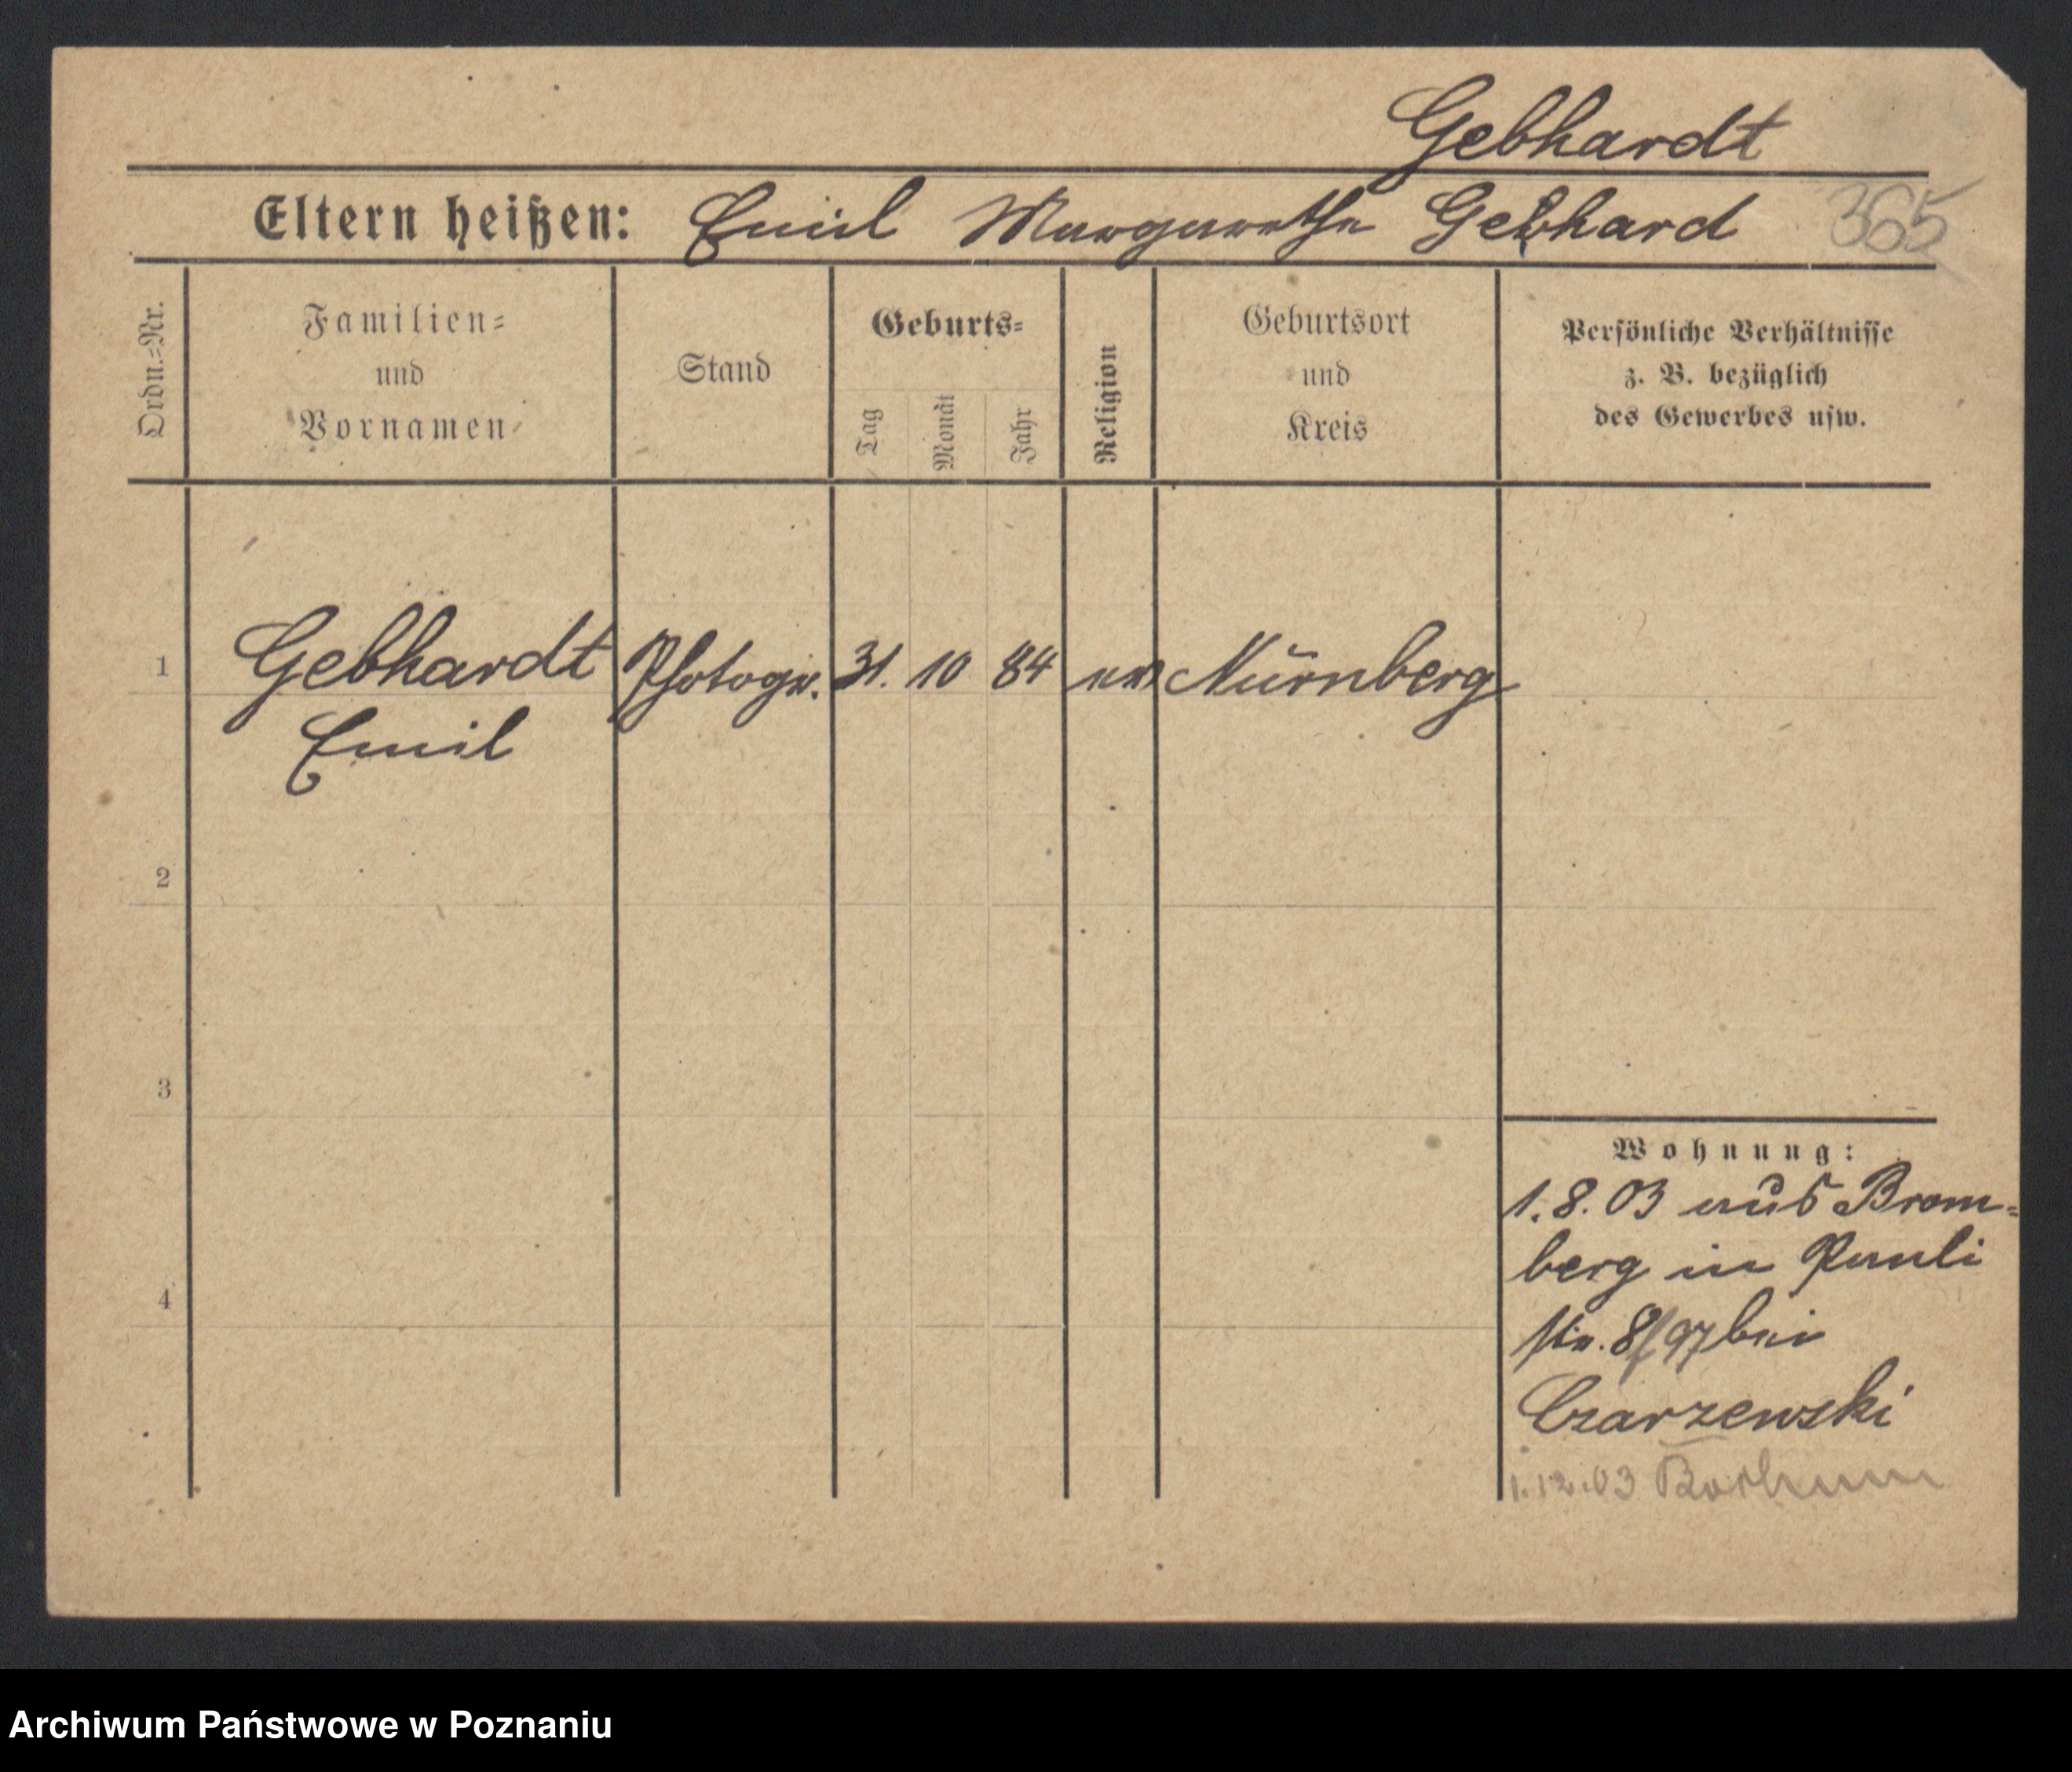 Gebhardt
Eltern heißen: Emil Margarethe Gebhard 365
Ordn.=Nr.
Familien=
und
Vornamen
Stand
Geburts=
Tag
Monat
Jahr
Religion
Geburtsort
und
Kreis
Persönliche Verhältnisse
z. B. bezüglich
des Gewerbes usw.
1 Gebhardt Photogr. 31. 10 84 ev Nürnberg
Emil
2
3
4
Wohnung:
1.8.03 aus Brom=
berg in Pauli
str. 8/97 bei
Czarzewski
1.12.03 Bochum
Archiwum Państwowe w Poznaniu